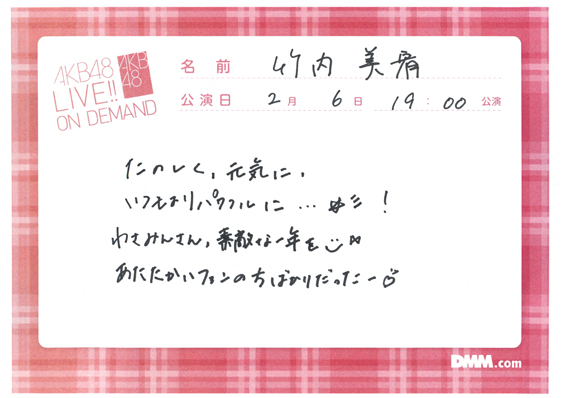 AKB48
LIVE!!
ON DEMAND
AKB
48
名 前 竹内 美宥
公演日 2月 6日 19:00 公演
たのしく、元気に、
いつもよりパワフルに … !
わさみんさん、素敵な一年を
あたたかいファンの方ばかりだったー
DMM.com